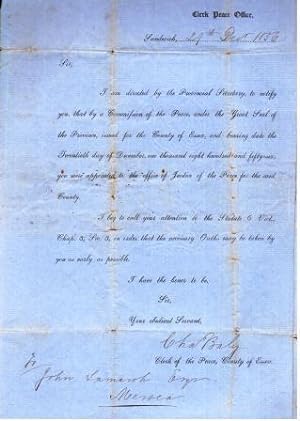 Clerk Peace Office,
Sandwich, 29th Decr. 1856
Sir,
I am directed by the Provincial Secretary, to notify
you, that by a Commission of the Peace, under the Great Seal of
the Province, issued for the County of Essex, and bearing date the
Twentieth day of December, one thousand eight hundred and fifty-six,
you were appointed to the office of Justice of the Peace for the said
County.
I beg to call your attention to the Statute 6 Vict.
Chap. 3, Sec. 3, in order that the necessary Oaths may be taken by
you as early as possible.
I have the honor to be,
Sir,
Your obedient Servant,
Chas Baby
Clerk of the Peace, County of Essex.
To
John Lamarsh Esqr
Mersea